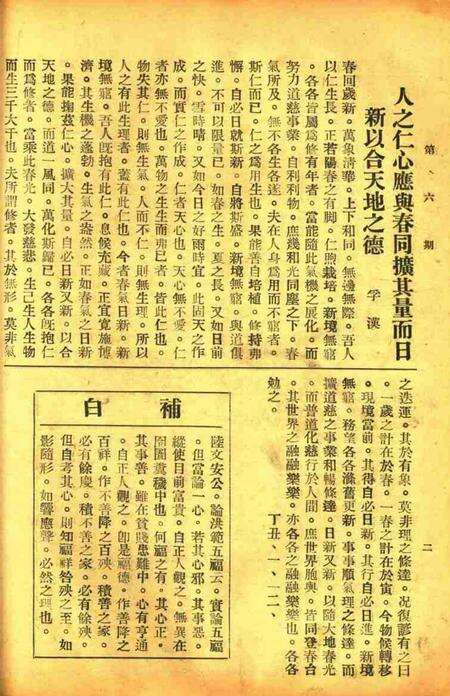 第、六期
二
人之仁心應與春同擴其量而日
新以合天地之德
孚漢
春回歲新。萬象清華。上下和同。無邊無際。吾人
以仁生長。正若陽春之有脚。仁煦栽培。新境無窮
。各各皆屬為修有年者。當能隨此氣機之展化。而
努力道慈事業。自利利物。庶幾和光同塵之下。春
氣所及。無不各生各遂。夫在人身為用而不窮者。
斯仁而已。仁之為用生也。果能善自培植。修持弗
懈。自必日就斯新。自將斯盛。新境無窮。與道俱
進。不可以限量已。如春之生。夏之長。又如日前
之快。雪時晴。又如今日之好雨時宜。此固天之作
成。而實仁之作成。仁者天心也。天心無不愛。仁
者亦無不愛也。萬物之生生而弗已者。皆此仁也。
物失其仁。則無生氣。人而不仁。則無生理。所以
人之有此生理者。蓋有此仁也。今者春氣日新。新
境無窮。吾人既抱有此仁。息候充藏。正宜寬施博
濟。其生機之蓬勃。生氣之盎然。正如春氣之日新
。果能掬茲仁心。擴大其量。自必日新又新。以合
天地之德。而道一風同。萬化斯歸已。各各既抱仁
而為修者。當乘此春光。大發慈悲。生己生人生物
而生三千大千也。夫所謂修者。其於無形。莫非氣
之迭運。其於有象。莫非理之條達。况復諺有之曰
。一歲之計在於春。一春之計在於寅。今物候轉移
。現境當前。其得自必日新。其行自必日進。新境
無窮。務望各各滌舊更新。事事順氣理之條達。而
擴道慈之事業和暢條達。日新又新。以隨大地春光
。而普道化慈行於人間。庶世界胞與。皆同登春台
。其世界之融融樂樂。亦各各之融融樂樂也。各各
勉之。
丁丑、一、一二、
補白
陸文安公。論洪範五福云。實論五福
。但當論一心。若其心邪。其事惡。
縱使目前富貴。自正人觀之。無異在
囹圄糞穢中也。何福之有。其心正。
其事善。雖在貧賤患難中。心有亨通
。自正人觀之。即是福德。作善降之
百祥。作不善降之百殃。積善之家。
必有餘慶。積不善之家。必有餘殃。
但自考其心。則知福祥咎殃之至。如
影隨形。如響應聲。必然之理也。